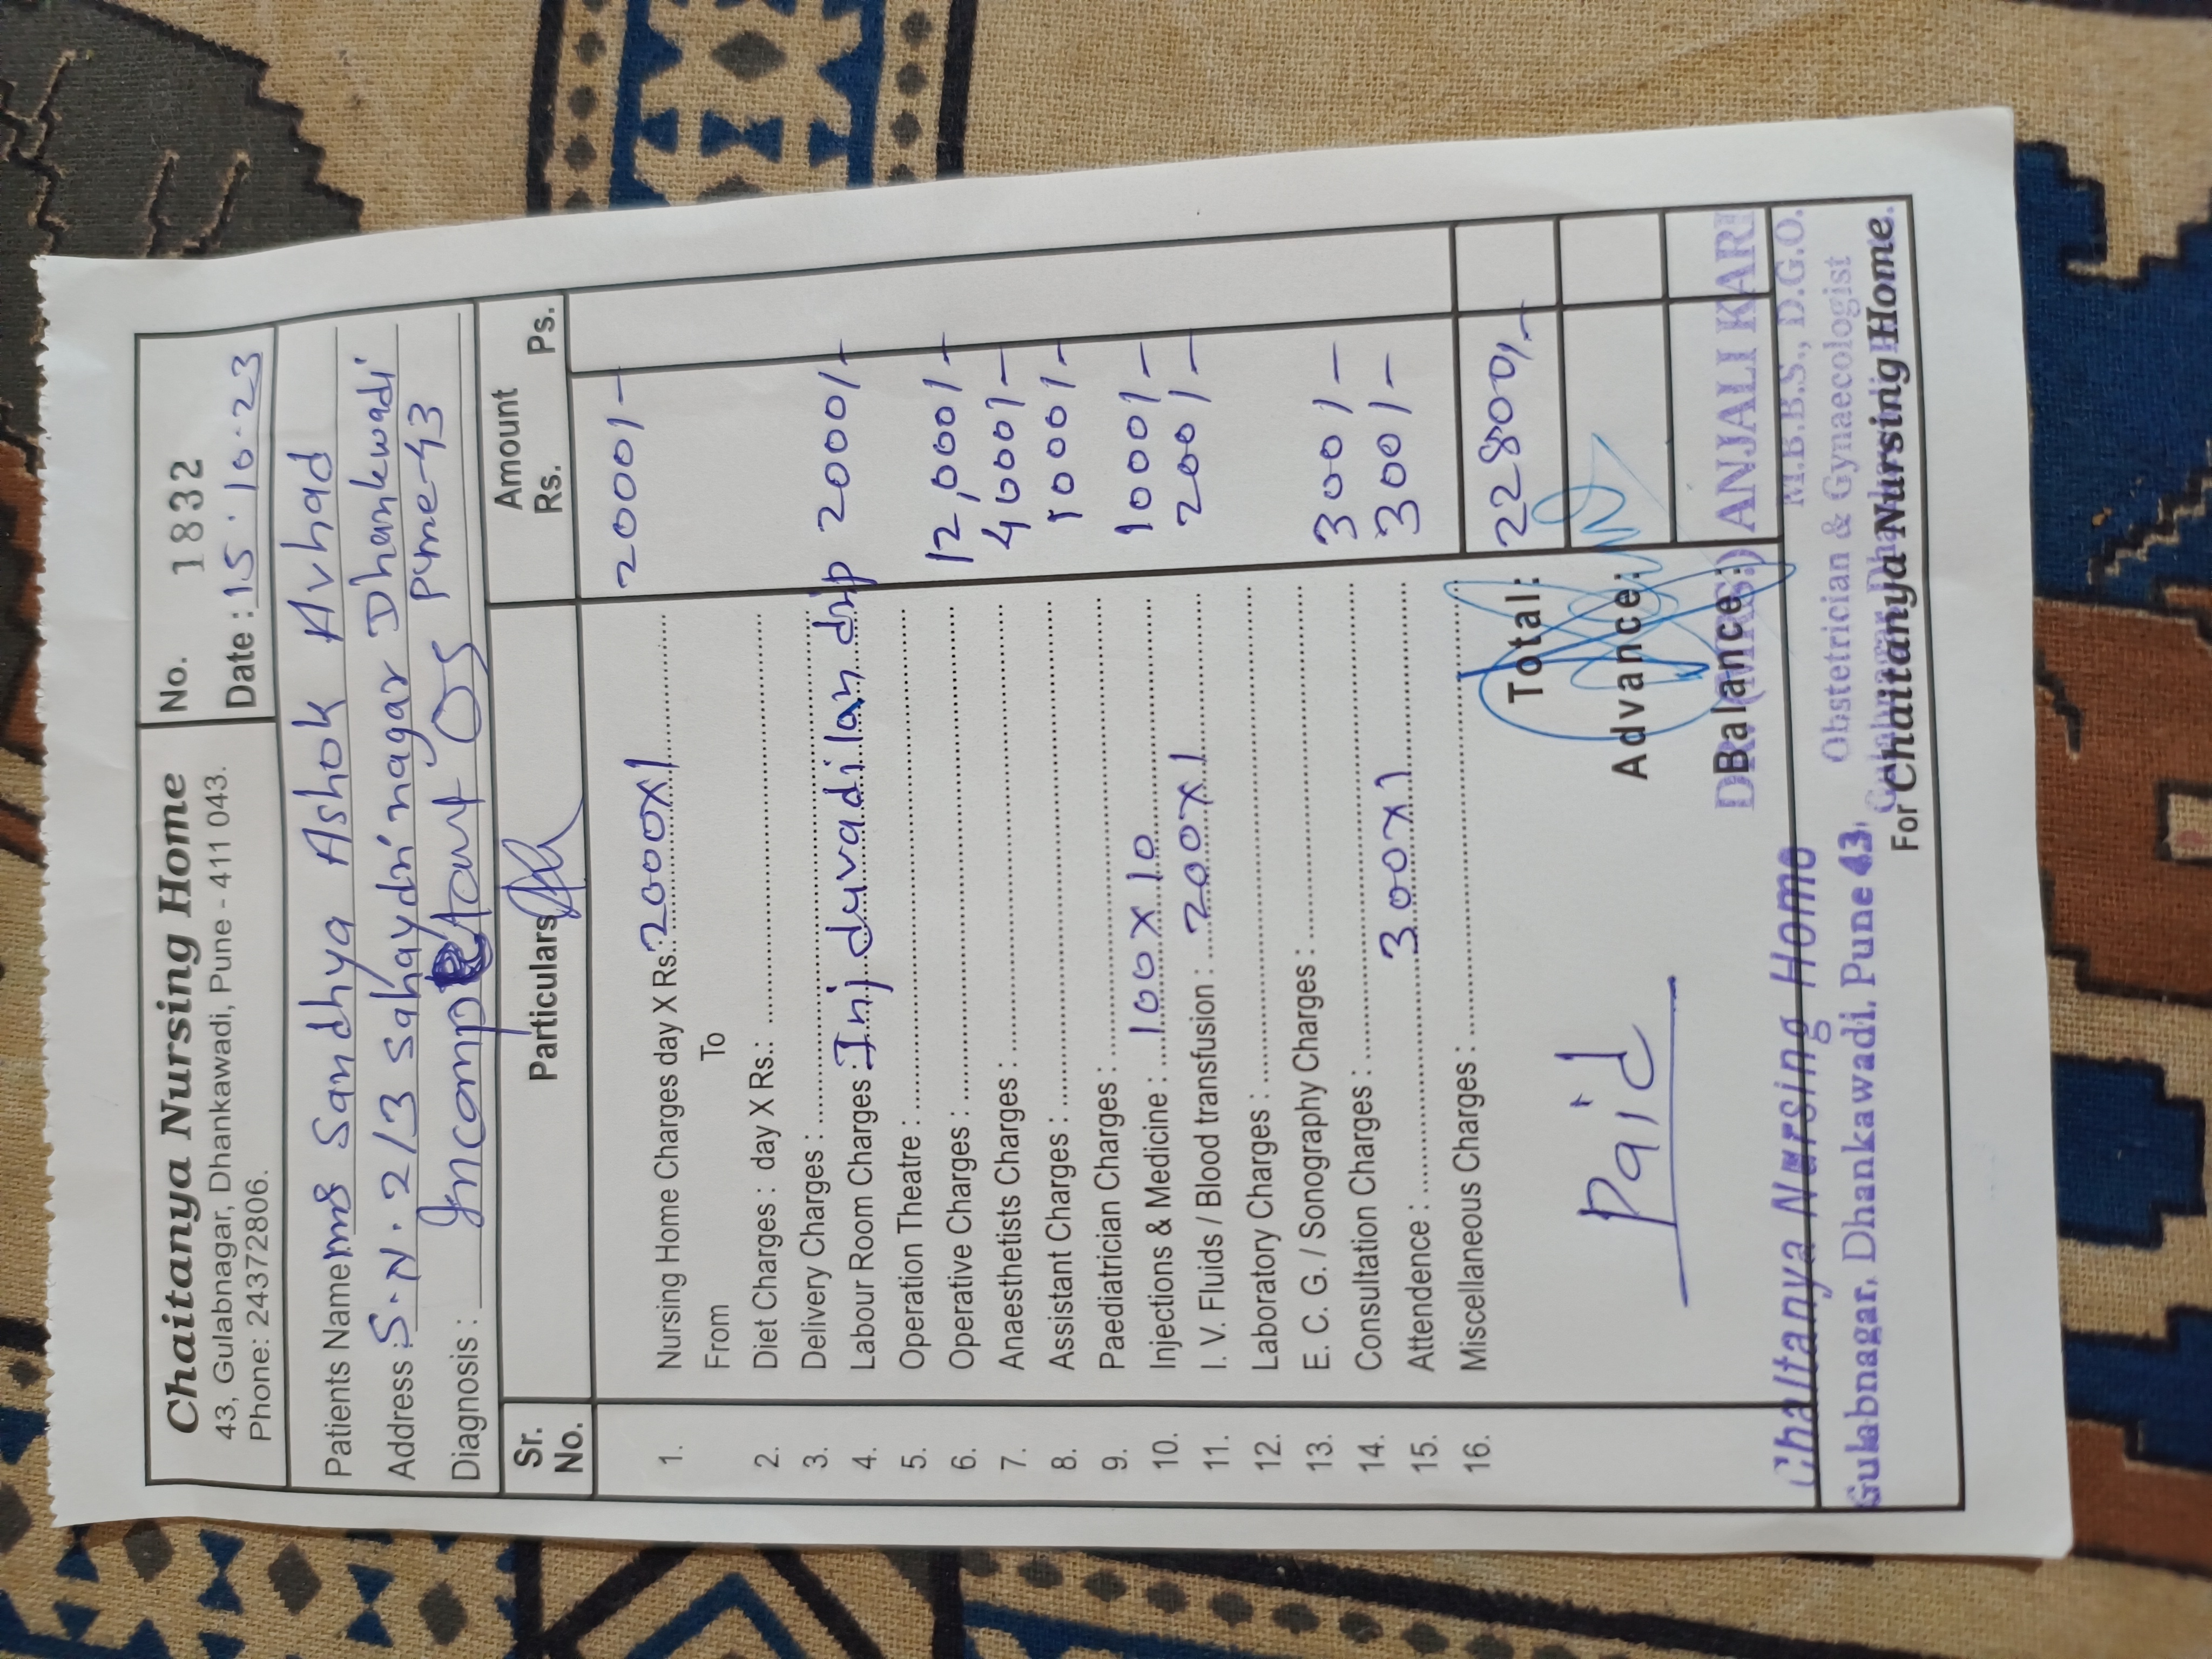 Chaitanya Nursing Home
43, Gulabnagar, Dhankawadi, Pune - 411 043.
Phone: 24372806.
No. 1832
Date : 15.10.23
Patients Name: Mrs Sandhya Ashok Avhad
Address : S.N. 2/3 Sahaydri nagar Dhankwadi
Pune-43
Diagnosis : Incompetant OS
Sr. No. Particulars Amount Rs. Ps.
1. Nursing Home Charges day X Rs.: 2000X1 2000/-
From To
2. Diet Charges : day X Rs.:
3. Delivery Charges :
4. Labour Room Charges : Inj duvadilan drip 2000/-
5. Operation Theatre :
6. Operative Charges : 12,000/-
7. Anaesthetists Charges : 4000/-
8. Assistant Charges : 1000/-
9. Paediatrician Charges :
10. Injections & Medicine : 100X10 1000/-
11. I. V. Fluids / Blood transfusion : 200X1 200/-
12. Laboratory Charges :
13. E. C. G. / Sonography Charges :
14. Consultation Charges : 300/-
15. Attendence : 300X1 300/-
16. Miscellaneous Charges :
Total: 22800/-
Paid
Advance:
Balance:
DR. (MRS.) ANJALI KARI
M.B.B.S., D.G.O.
Obstetrician & Gynaecologist
Gulabnagar, Dhankawadi,
Chaitanya Nursing Home
Gulabnagar, Dhankawadi, Pune 43.
For Chaitanya Nursing Home